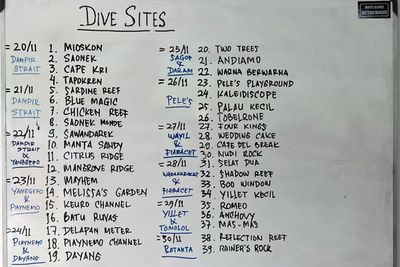 DIVE SITES
= 20/11
DAMPIR
STRAIT
1. MIOSKON
2. SAONEK
3. CAPE KRI
4. TAPOKREN
= 21/11
DAMPIR
STRAIT
5. SARDINE REEF
6. BLUE MAGIC
7. CHICKEN REEF
8. SAONEK MONDE
= 22/11
DAMPIR
STRAIT
&
YANGGEFO
9. SAWANDAREK
10. MANTA SANDY
11. CITRUS RIDGE
12. MANGROVE RIDGE
= 23/11
YANGGEFO
&
PIAYNEMO
13. MAYHEM
14. MELISSA'S GARDEN
15. KEURO CHANNEL
16. BATU RUFAS
= 24/11
PIAYNEMO
&
DAYANG
17. DELAPAN METER
18. PIAYNEMO CHANNEL
19. DAYANG
= 25/11
SAGOF
&
DARAM
20. TWO TREES
21. ANDIAMO
22. WARNA BERWARNA
= 26/11
PELE'S
23. PELE'S PLAYGROUND
24. KALEIDISCOPE
25. PALAU KECIL
26. TOBELRONE
= 27/11
WAYIL
&
FIABACET
27. FOUR KINGS
28. WEDDING CAKE
29. CAFE DEL BREAK
30. NUDI ROCK
= 28/11
&
FIABACET
31. SELAT DUA
32. SHADOW REEF
33. BOO WINDOW
34. YILLET KECIL
= 29/11
YILLET
&
TOMOLOL
35. ROMEO
36. ANCHOVY
37. MAS-MAS
= 30/11
BATANTA
38. REFLECTION REEF
39. RAINER'S ROCK